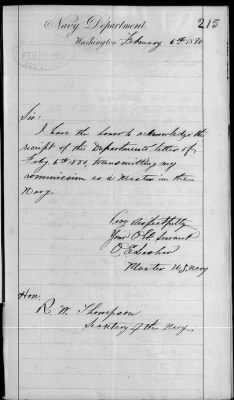 215
Navy Department,
Washington February 6th 1880
Sir:
I have the honor to acknowledge the
receipt of the Departments letter of
Feby 6th transmitting my
commission as a Master in the
Navy.
Very respectfully
Your Obt. Servant
O. E.
Master U.S. Navy
Hon.
R. W. Thompson
Secretary of the Navy.